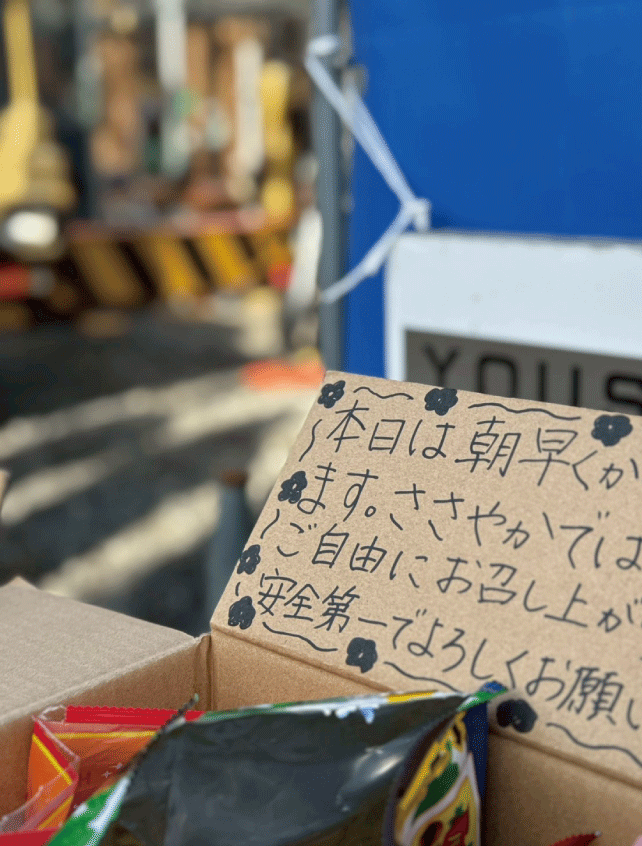 YOUS
本日は朝早くか
ます。ささやかでは
ご自由にお召し上が
安全第一でよろしくお願い